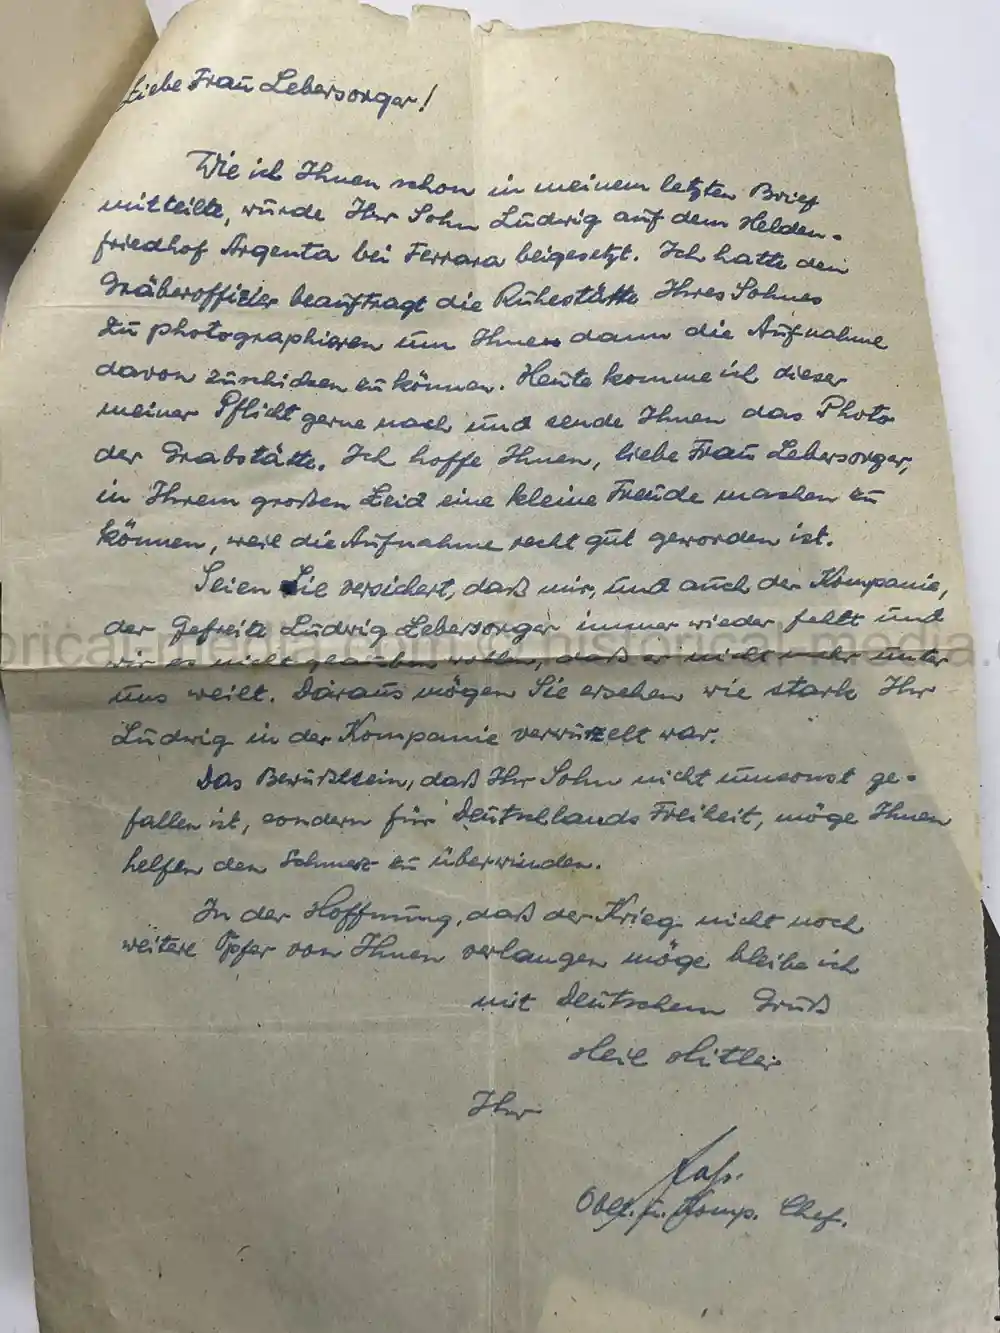 Liebe Frau Lebersorger!
Wie ich Ihnen schon in meinem letzten Brief
mitteilte, wurde Ihr Sohn Ludwig auf dem Helden-
friedhof Argenta bei Ferrara beigesetzt. Ich hatte den
Gräberoffizier beauftragt die Ruhestätte Ihres Sohnes
zu photographieren um Ihnen dann die Aufnahme
davon zuschicken zu können. Heute komme ich dieser
meiner Pflicht gerne nach und sende Ihnen das Photo
der Grabstätte. Ich hoffe Ihnen, liebe Frau Lebersorger,
in Ihrem großen Leid eine kleine Freude machen zu
können, weil die Aufnahme recht gut geworden ist.
Seien Sie versichert, daß mir, und auch der Kompanie,
der Gefreite Ludwig Lebersorger immer wieder fehlt und
wir es nicht glauben wollen, daß er nicht mehr unter
uns weilt. Daraus mögen Sie ersehen wie stark Ihr
Ludwig in der Kompanie verwurzelt war.
Das Bewußtsein, daß Ihr Sohn nicht umsonst ge-
fallen ist, sondern für Deutschlands Freiheit, möge Ihnen
helfen den Schmerz zu überwinden.
In der Hoffnung, daß der Krieg nicht noch
weitere Opfer von Ihnen verlangen möge bleibe ich
mit Deutschem Gruß
Heil Hitler
Ihr
Oblt. u. Komp. Chef.
historical-media.com © historical-media.c